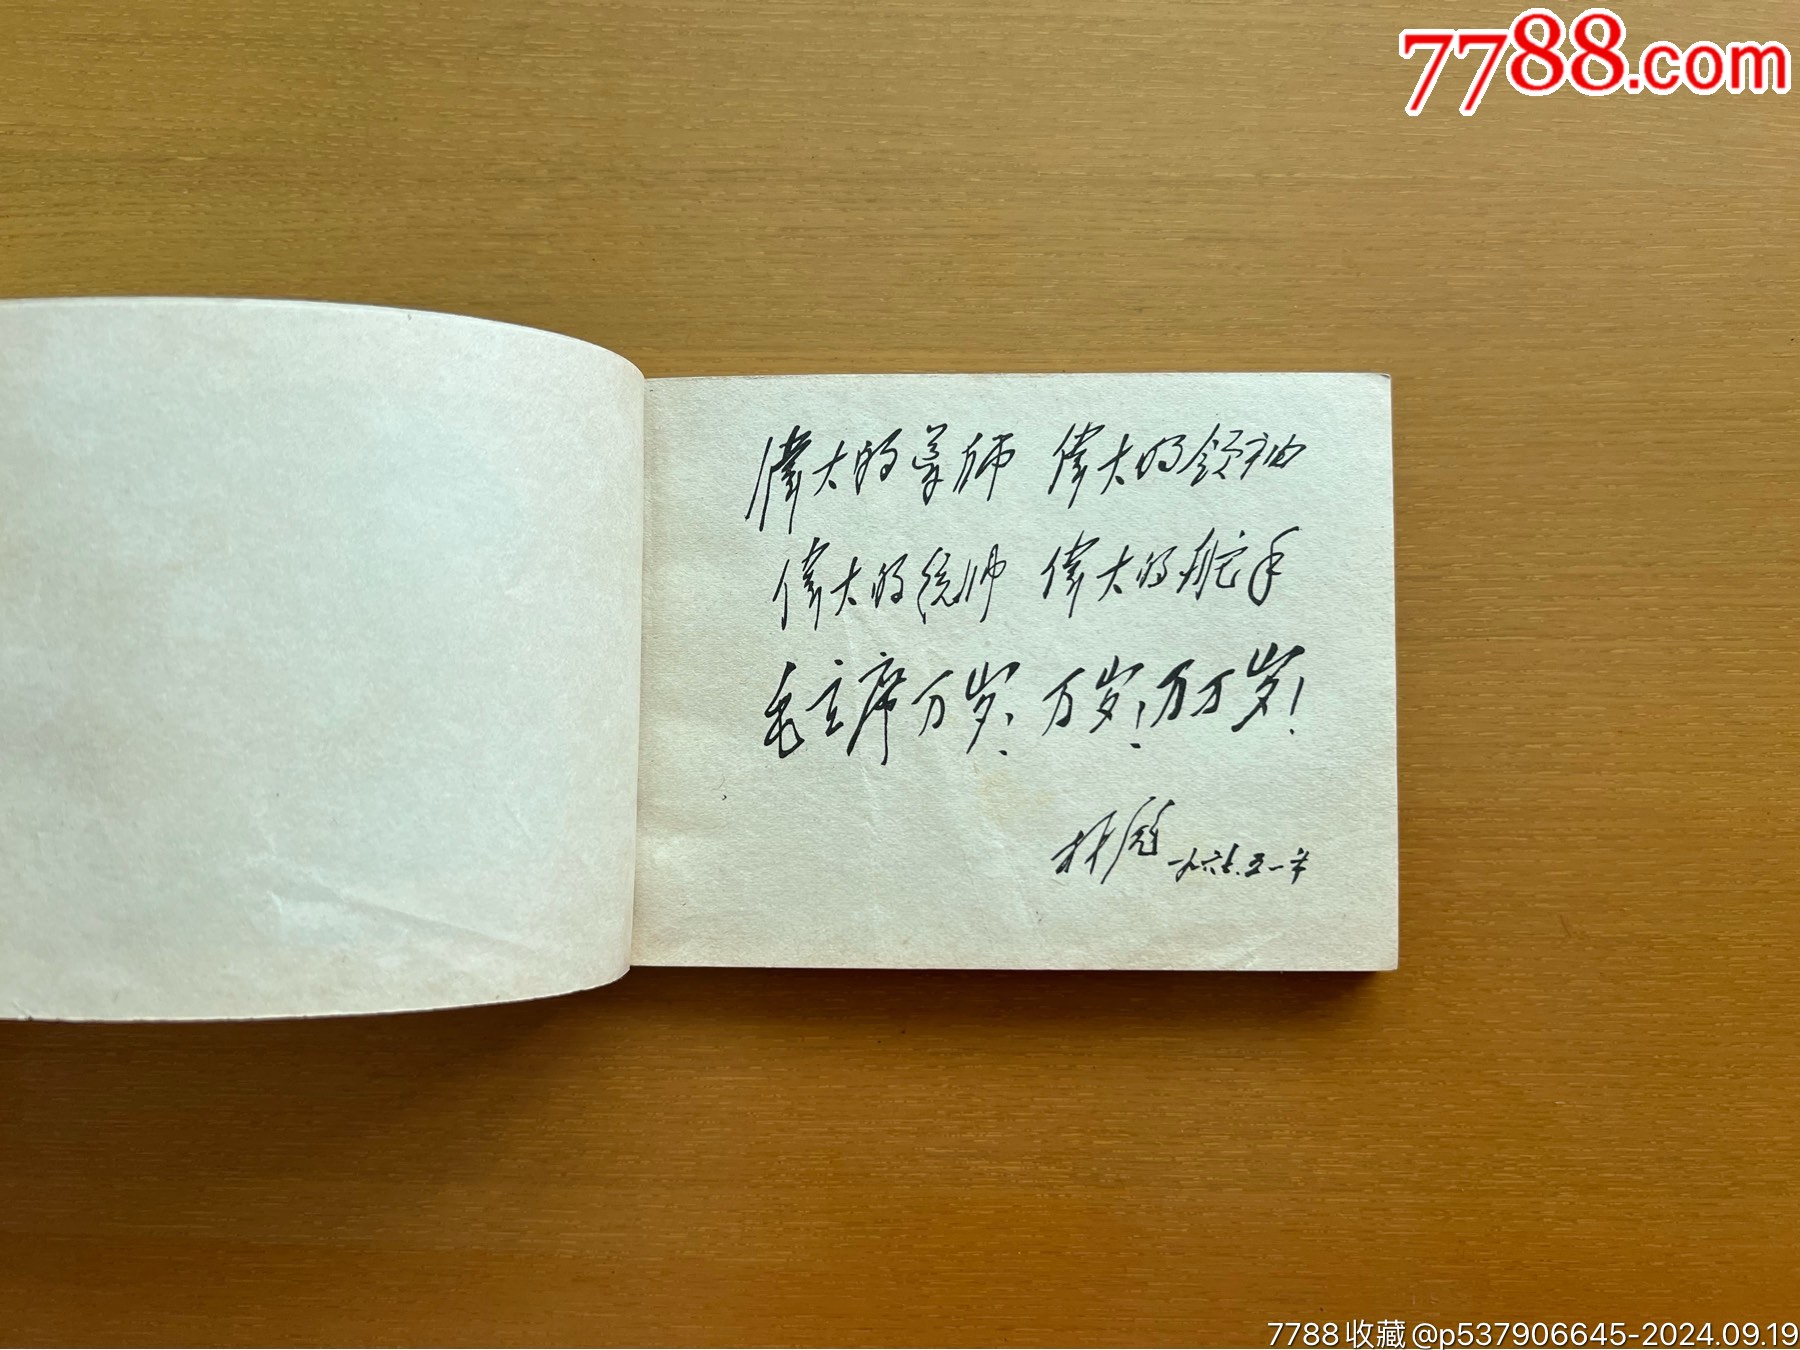 7788.com
偉大的导师 偉大的领袖
偉大的统帅 偉大的舵手
毛主席万岁!万岁!万万岁!
林彪 一九六七.五.一六
7788收藏@p537906645-2024.09.19